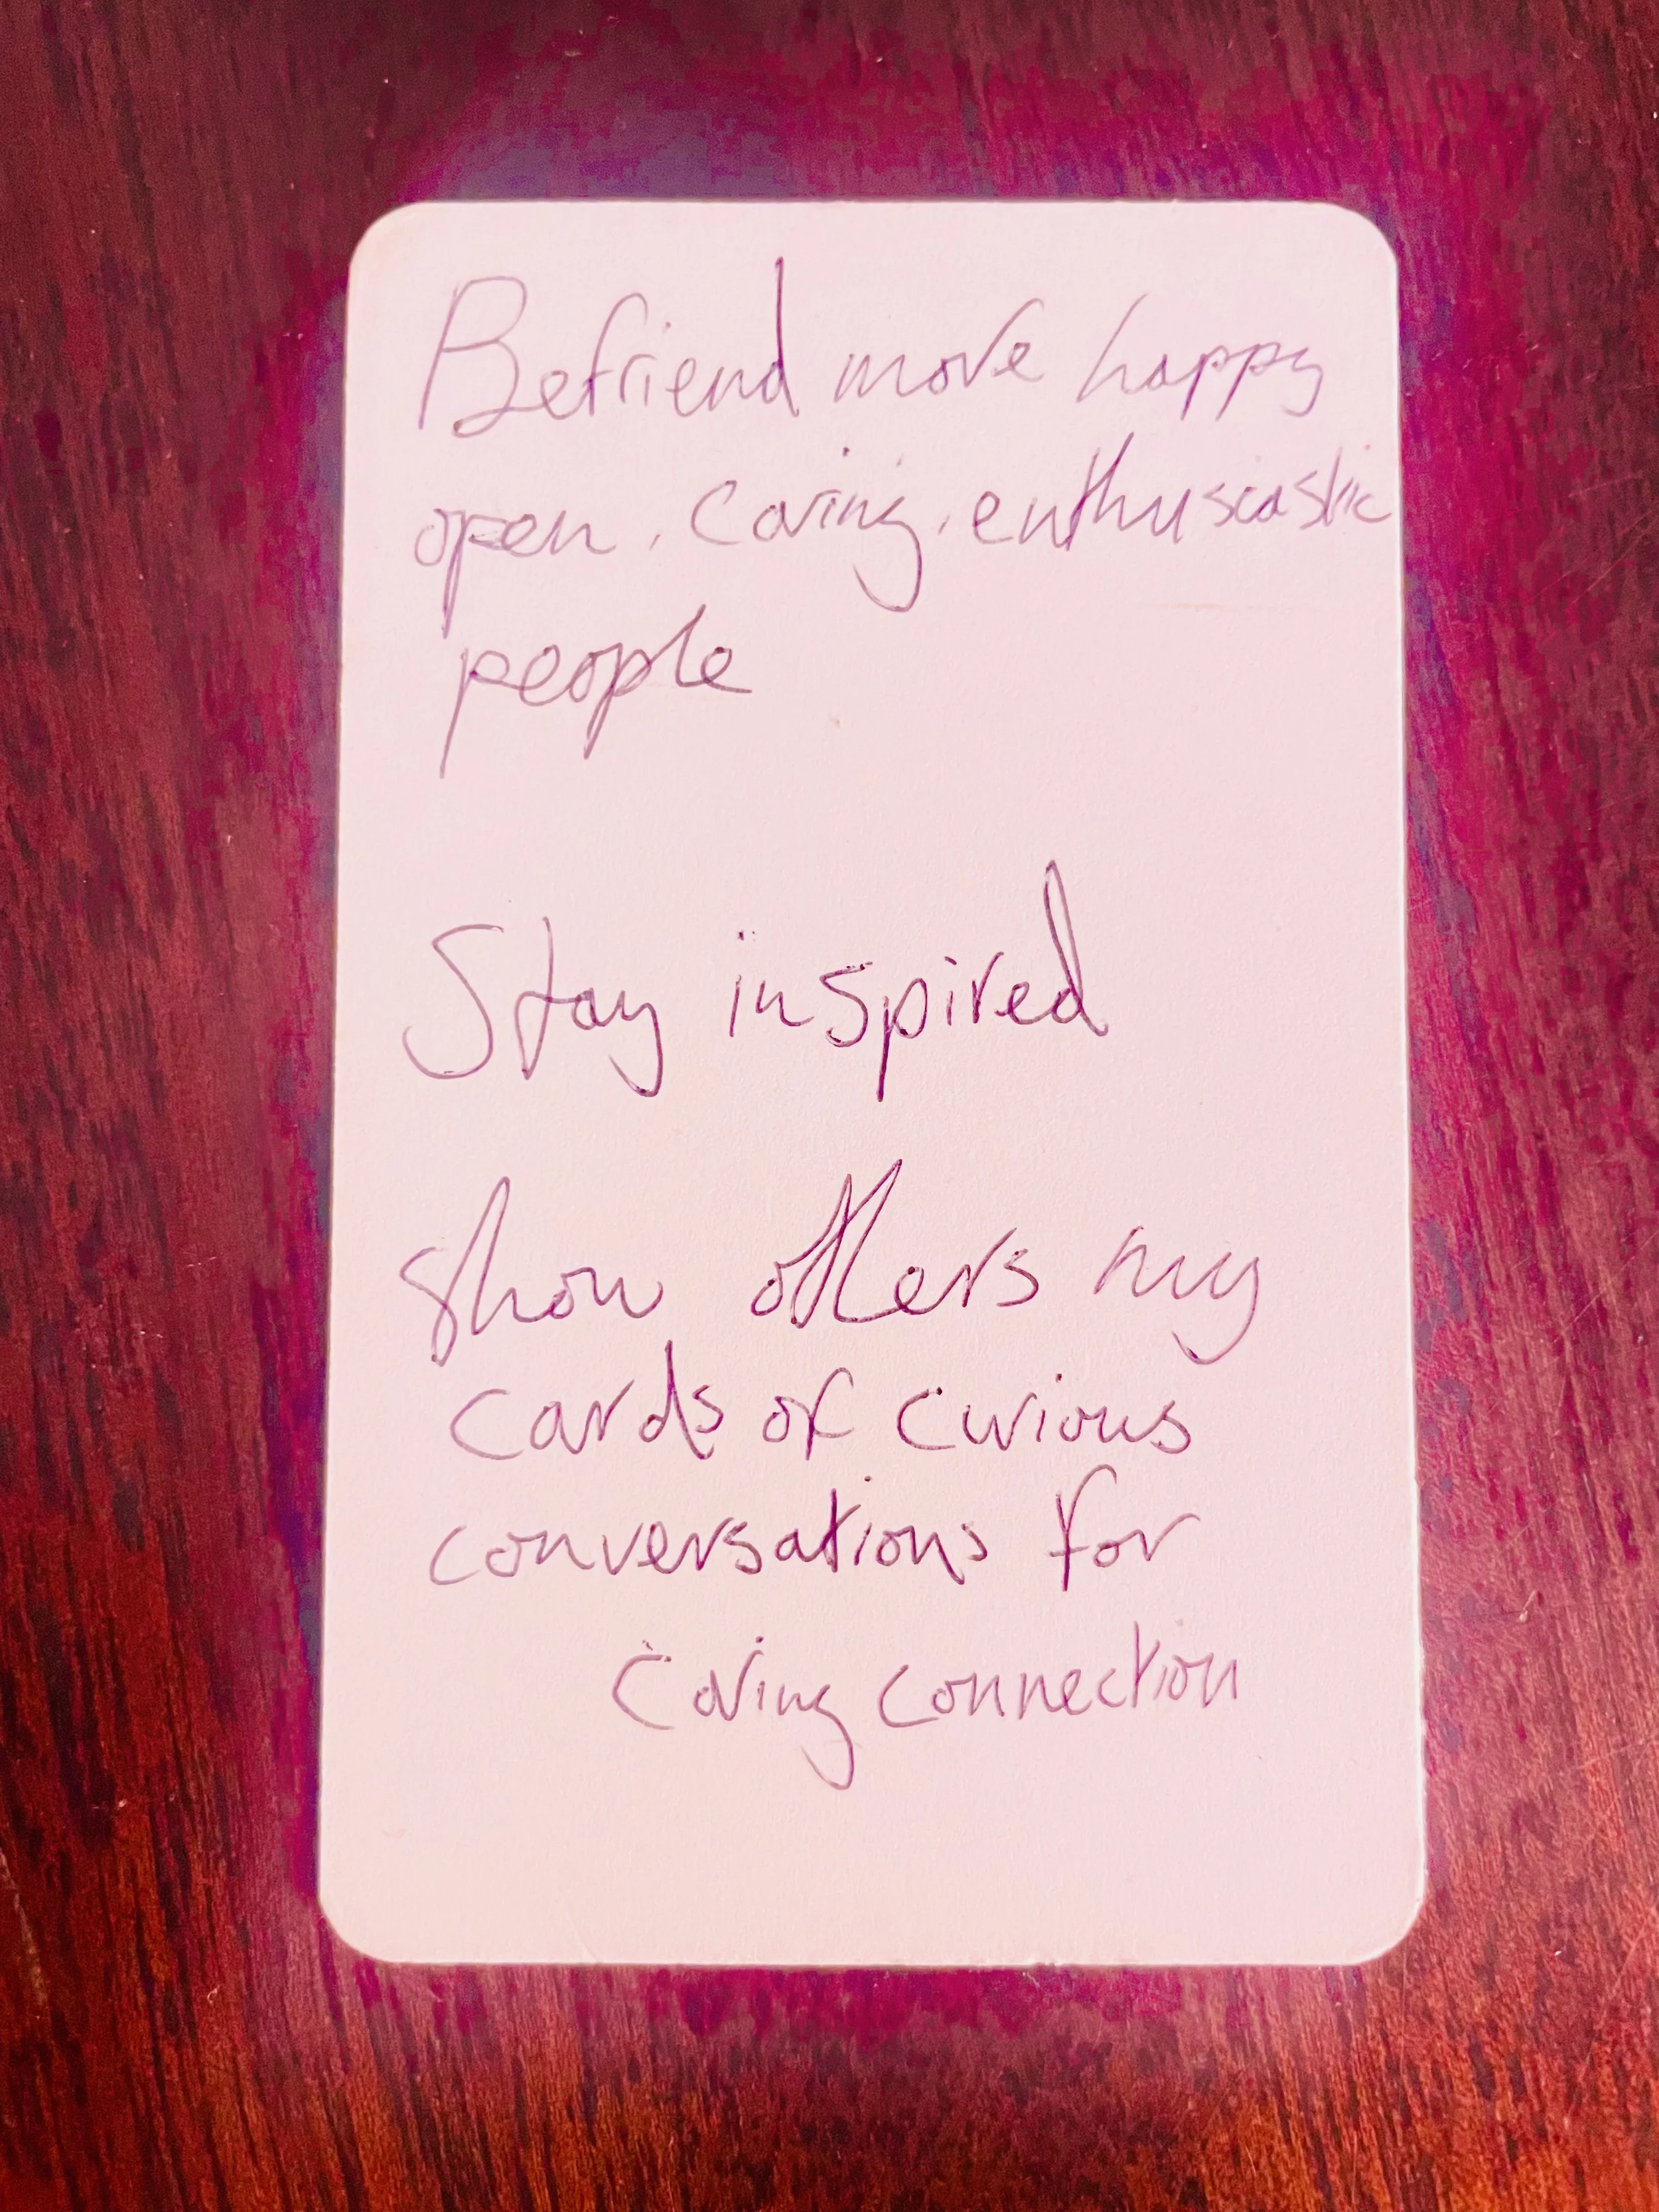 Befriend more happy
open, caring, enthusciastic
people
Stay inspired
show others my
cards of curious
conversations for
caring connection